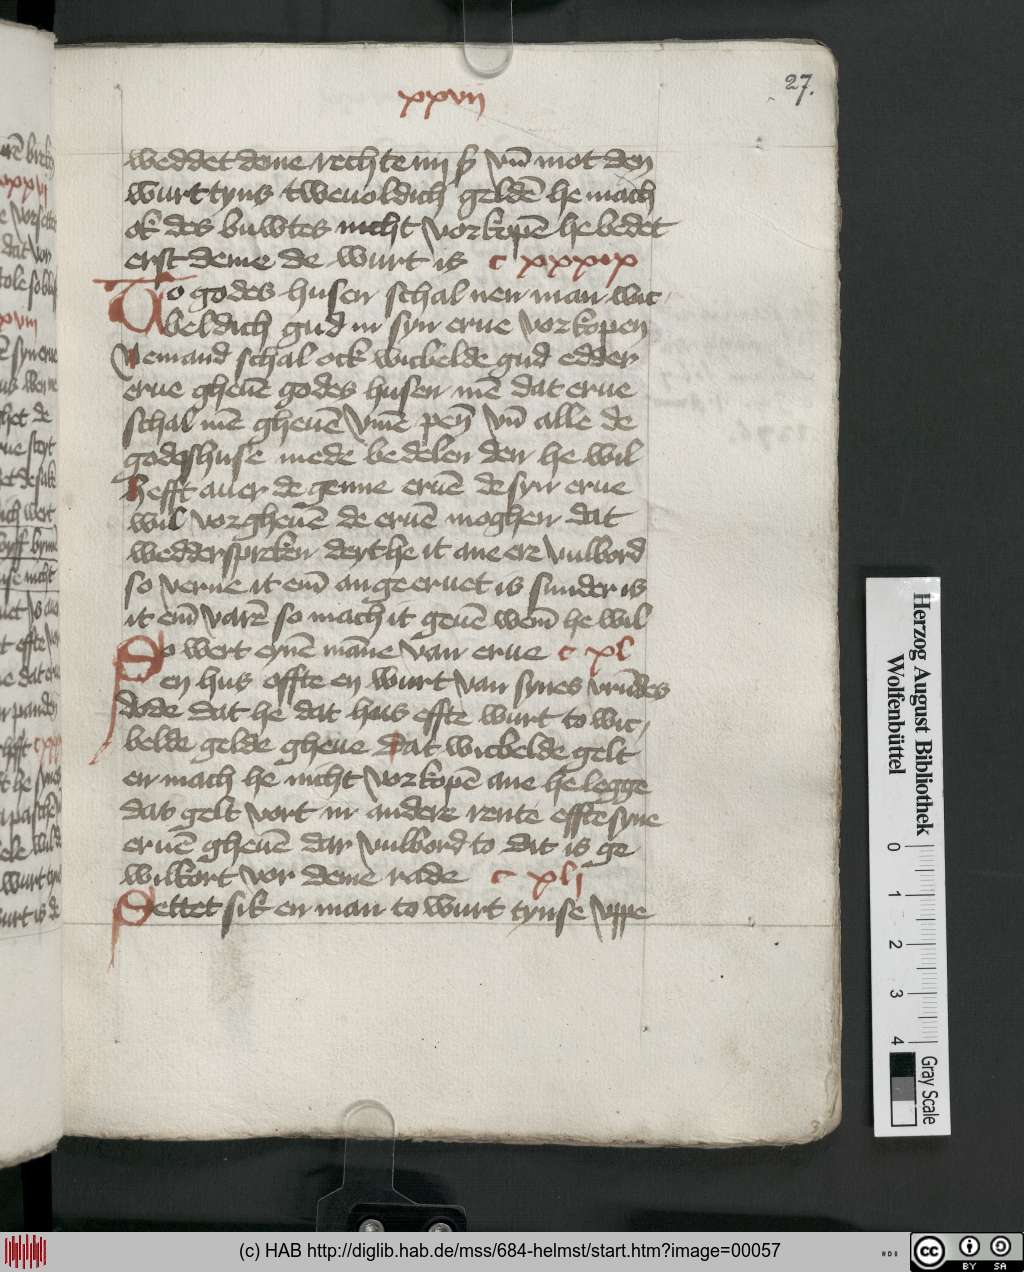 xxvij
27.
weddet deme rechte iiij ß vn̄ mot den
wurttyns twevoldich geldē he mach
ok des buwtes nicht vorkopē he bedet
erst deme de wurt is c xxxix
To godes husen schal nen man wic
beldich gud in syn erue vorkopen
Nemand schal ock wicbelde gud edder
erue gheuē godes husen mē dat erue
schal mē gheuē vm̄e pen̄ vn̄ alle de
godeshuse mede bedelen den he wil
hefft auer de genne eruē de syn erue
wil vorgheuē de eruē moghen dat
wedderspreken deyt he it ane ere vulbord
so verne it em̄ angeeruet is sunder is
it em̄ varē so mach it geuē wem̄ he wil
So wert eynē māne van erue c xl
en hus effte en wurt van synes vrūdes
dode dat he dat hus effte wurt to wic/
belde gelde gheue dat wicbelde gelt
en mach he nicht vorkopē ane he legge
dat gelt vort in andere rente effte syne
eruē gheuē dar vulbord to dit is ge
wilkort vor deme rade c xlj
Settet sik en man to wurt tynse vppe
Herzog August Bibliothek
Wolfenbüttel
0 1 2 3 4
Gray Scale
(c) HAB http://diglib.hab.de/mss/684-helmst/start.htm?image=00057
cc BY SA